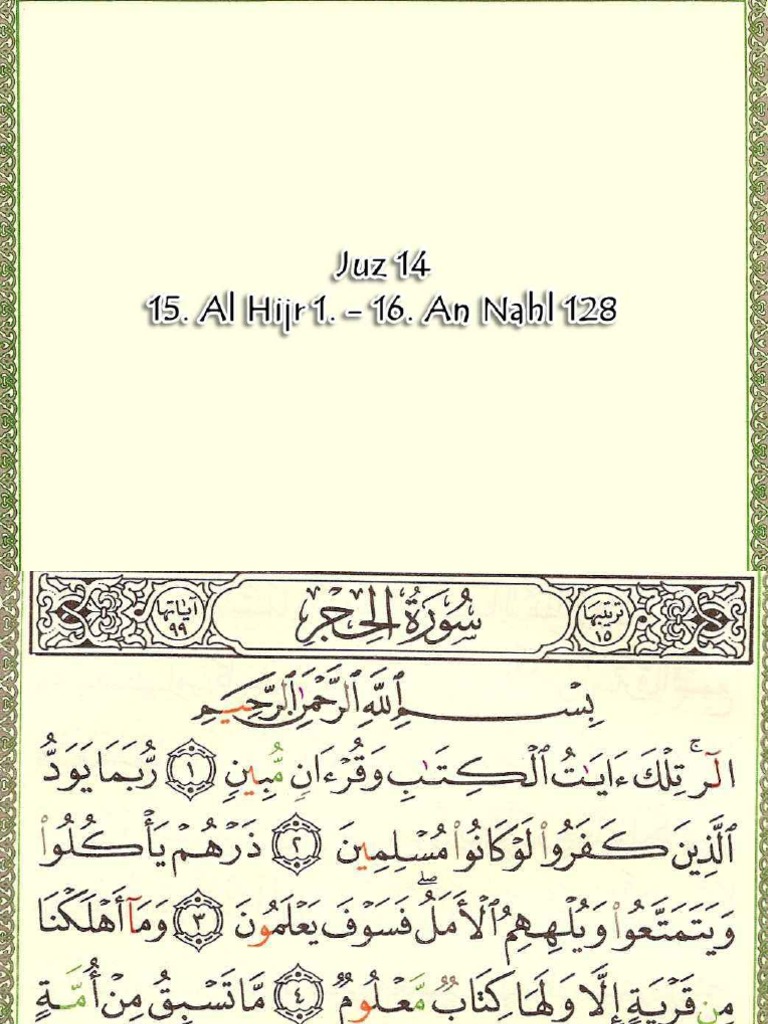 Juz 14
15. Al Hijr 1. - 16. An Nahl 128
ترتيبها ١٥ سُورَةُ الحِجْرِ آياتها ٩٩
بِسْمِ ٱللَّهِ ٱلرَّحْمَٰنِ ٱلرَّحِيمِ
الٓرۚ تِلْكَ ءَايَٰتُ ٱلْكِتَٰبِ وَقُرْءَانٍ مُّبِينٍ ١ رُّبَمَا يَوَدُّ
ٱلَّذِينَ كَفَرُوا۟ لَوْ كَانُوا۟ مُسْلِمِينَ ٢ ذَرْهُمْ يَأْكُلُوا۟
وَيَتَمَتَّعُوا۟ وَيُلْهِهِمُ ٱلْأَمَلُۖ فَسَوْفَ يَعْلَمُونَ ٣ وَمَآ أَهْلَكْنَا
مِن قَرْيَةٍ إِلَّا وَلَهَا كِتَابٌ مَّعْلُومٌ ٤ مَّا تَسْبِقُ مِنْ أُمَّةٍ